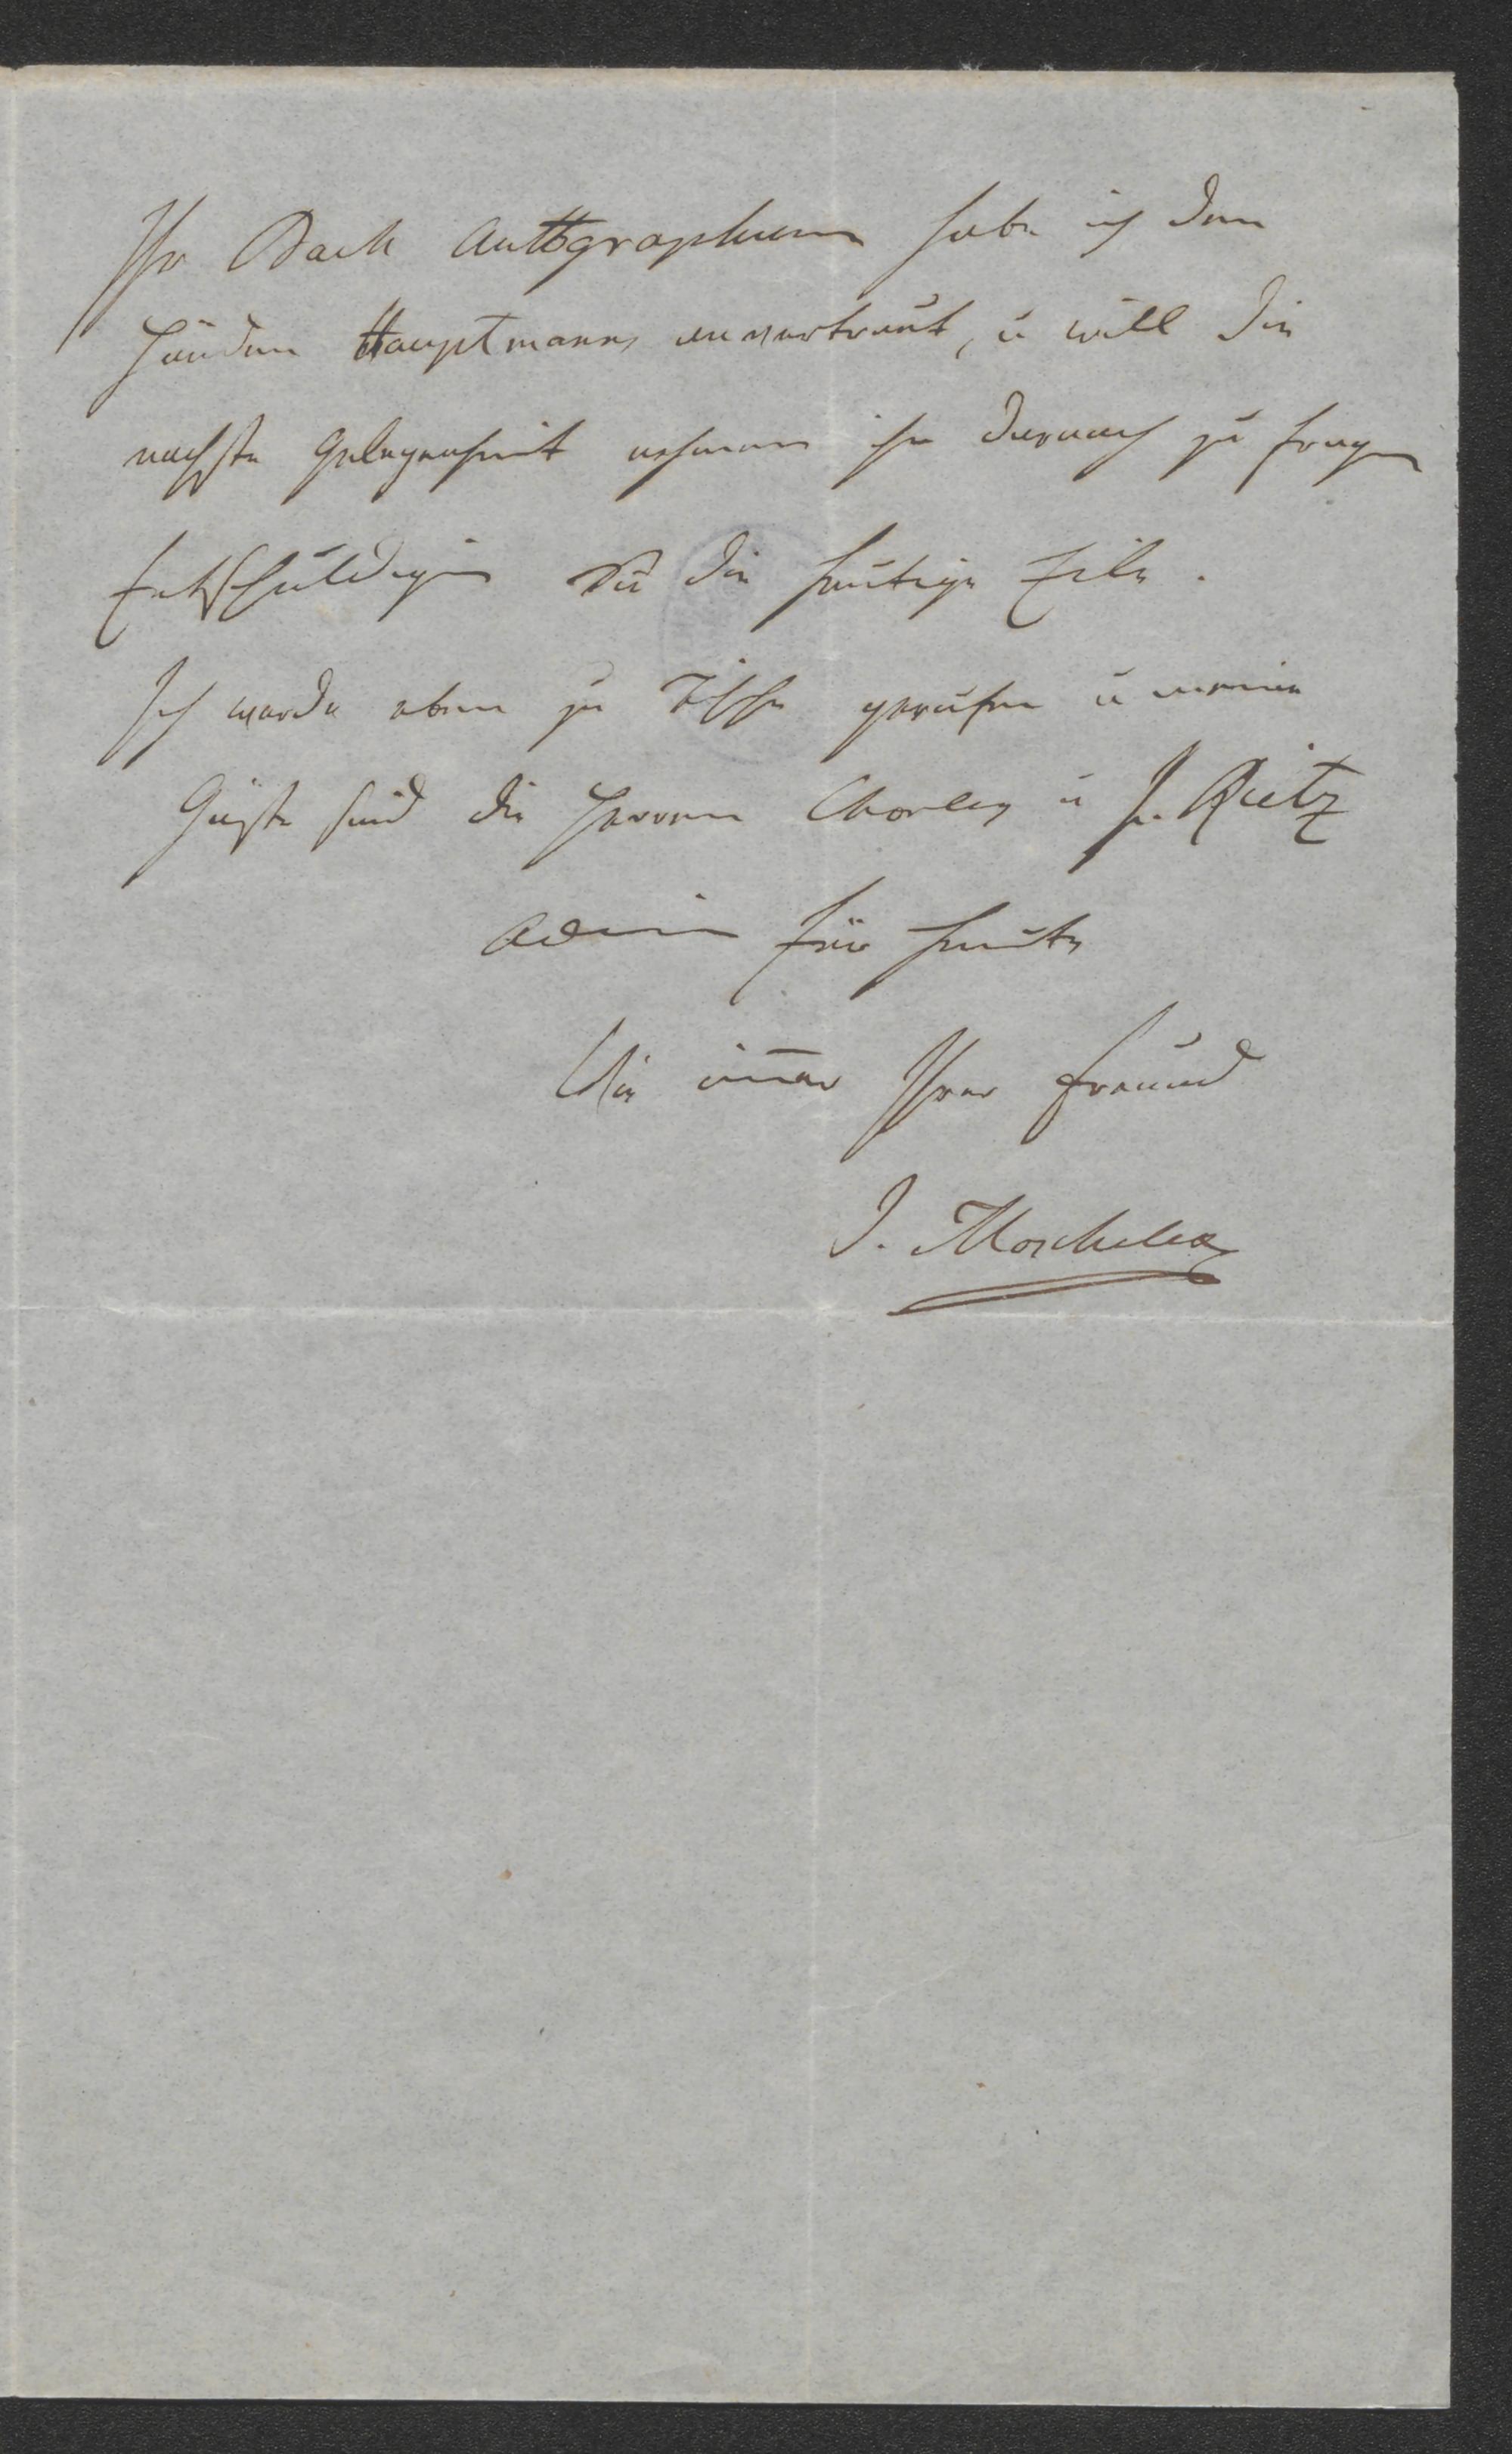 Ihr Bach Autographum habe ich den
Händen Hauptmanns anvertraut, u will die
nachste Gelegenheit nehmen ihn darnach zu fragen
Entschuldigen Sie die heutige Eile.
Ich werde eben zu Tische gerufen u meine
Gäste sind die Herren Chorley u J. Rietz
Adieu für heute
Wie im̄er Ihrer Freund
J. Moscheles